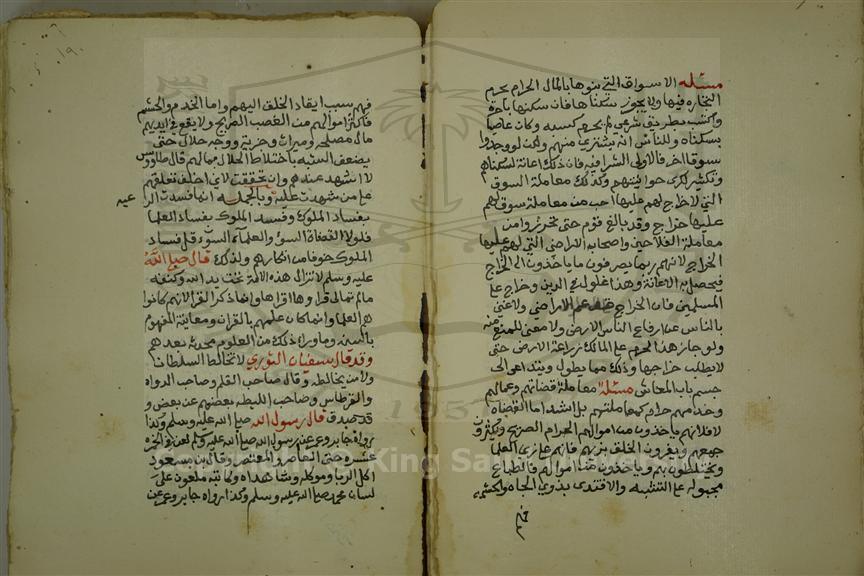 مسئله الاسواق التي بنوها بالمال الحرام يحرم
التجاره فيها ولا يجوز سكناها فان سكنها باجرة
واكتسب بطريق شرعي لم يحرم كسبه وكان عاصيا
بسكناه وللناس ان يشتري منهم ولكن لو وجدوا
سوقا اخر فالاولى الشرا فيه فان ذلك اعانة لسكناهم
وتكثير لكرى حوانيتهم وكذلك معاملة السوق
التي لا خراج لهم عليها احب من معاملة سوق لهم
عليها خراج وقد بالغ قوم حتى تحرزوا من
معاملة الفلاحين واصحاب الاراضي التي لهم عليها
الخراج لانهم ربما يصرفون ما ياخذون الى الخراج
فيحصل به الاعانة وهذا غلو في الدين وحرج على
المسلمين فان الخراج قد عم الاراضي ولا غنى
بالناس عن ارفاع الناس الارض ولا معنى للمنع منه
ولو جاز هذا لحرم على المالك زراعة الارض حتى
لا يطلب خراجها وذلك مما يطول ويتداعى الى
حسم باب المعاش مسئلة معاملة قضاتهم وعمالهم
وخدامهم حرام كمعاملتهم بل اشد اما القضاه
فلانهم ياخذون من اموالهم الحرام الصريح ويكثرون
جمعهم ويغرون الخلق بزيهم فانهم على زي العلما
ويختلطون بهم وياخذون من اموالهم فالطباع
مجبوله على التشبه والاقتدى بذوي الجاه والحشمه
فهم
فهم سبب انقياد الخلق اليهم واما الخدم والحشم
فاكثر اموالهم من الغصب الصريح ولا يقع في ايديهم
مال مصلحه وميراث وجزية ووجه حلال حتى
يضعف الشبه باختلاط الحلال بمالهم قال طاووس
لا اشهد عندهم وان تحققت لاني اخاف تعلقهم
على من شهدت عليه وبالجمله انما فسدت الر
عيه
بفساد الملوك وفسد الملوك بفساد العلما
فلولا القضاة السوء والعلماء السوء قل فساد
الملوك خوفا من انكارهم ولذلك قال صلى الله
عليه وسلم لا تزال هذه الامة تحت يد الله وكنفه
مالم تمالي قراوها امراها وانما ذكر القرا لانهم كانوا
هم العلما وانما كان علمهم بالقران ومعانيه المفهوم
بالسنه وما وراء ذلك من العلوم محدثة بعدهم
وقد قال سفيان الثوري لا تخالط السلطان
ولا من يخالطه وقال صاحب القلم وصاحب الدواه
والقرطاس وصاحب الليطه بعضهم عن بعض و
قد صدق قال رسول الله صلى الله عليه وسلم وكذا
رواه جابر وعمر عن رسول الله صلى الله عليه وسلم لعن في الخمر
عشره حتى العاصر والمعتصر وقال بن مسعود
اكل الربا وموكله وشاهداه وكاتبه ملعون على
لسان محمد صلى الله عليه وسلم وكذا رواه جابر وعمر عن